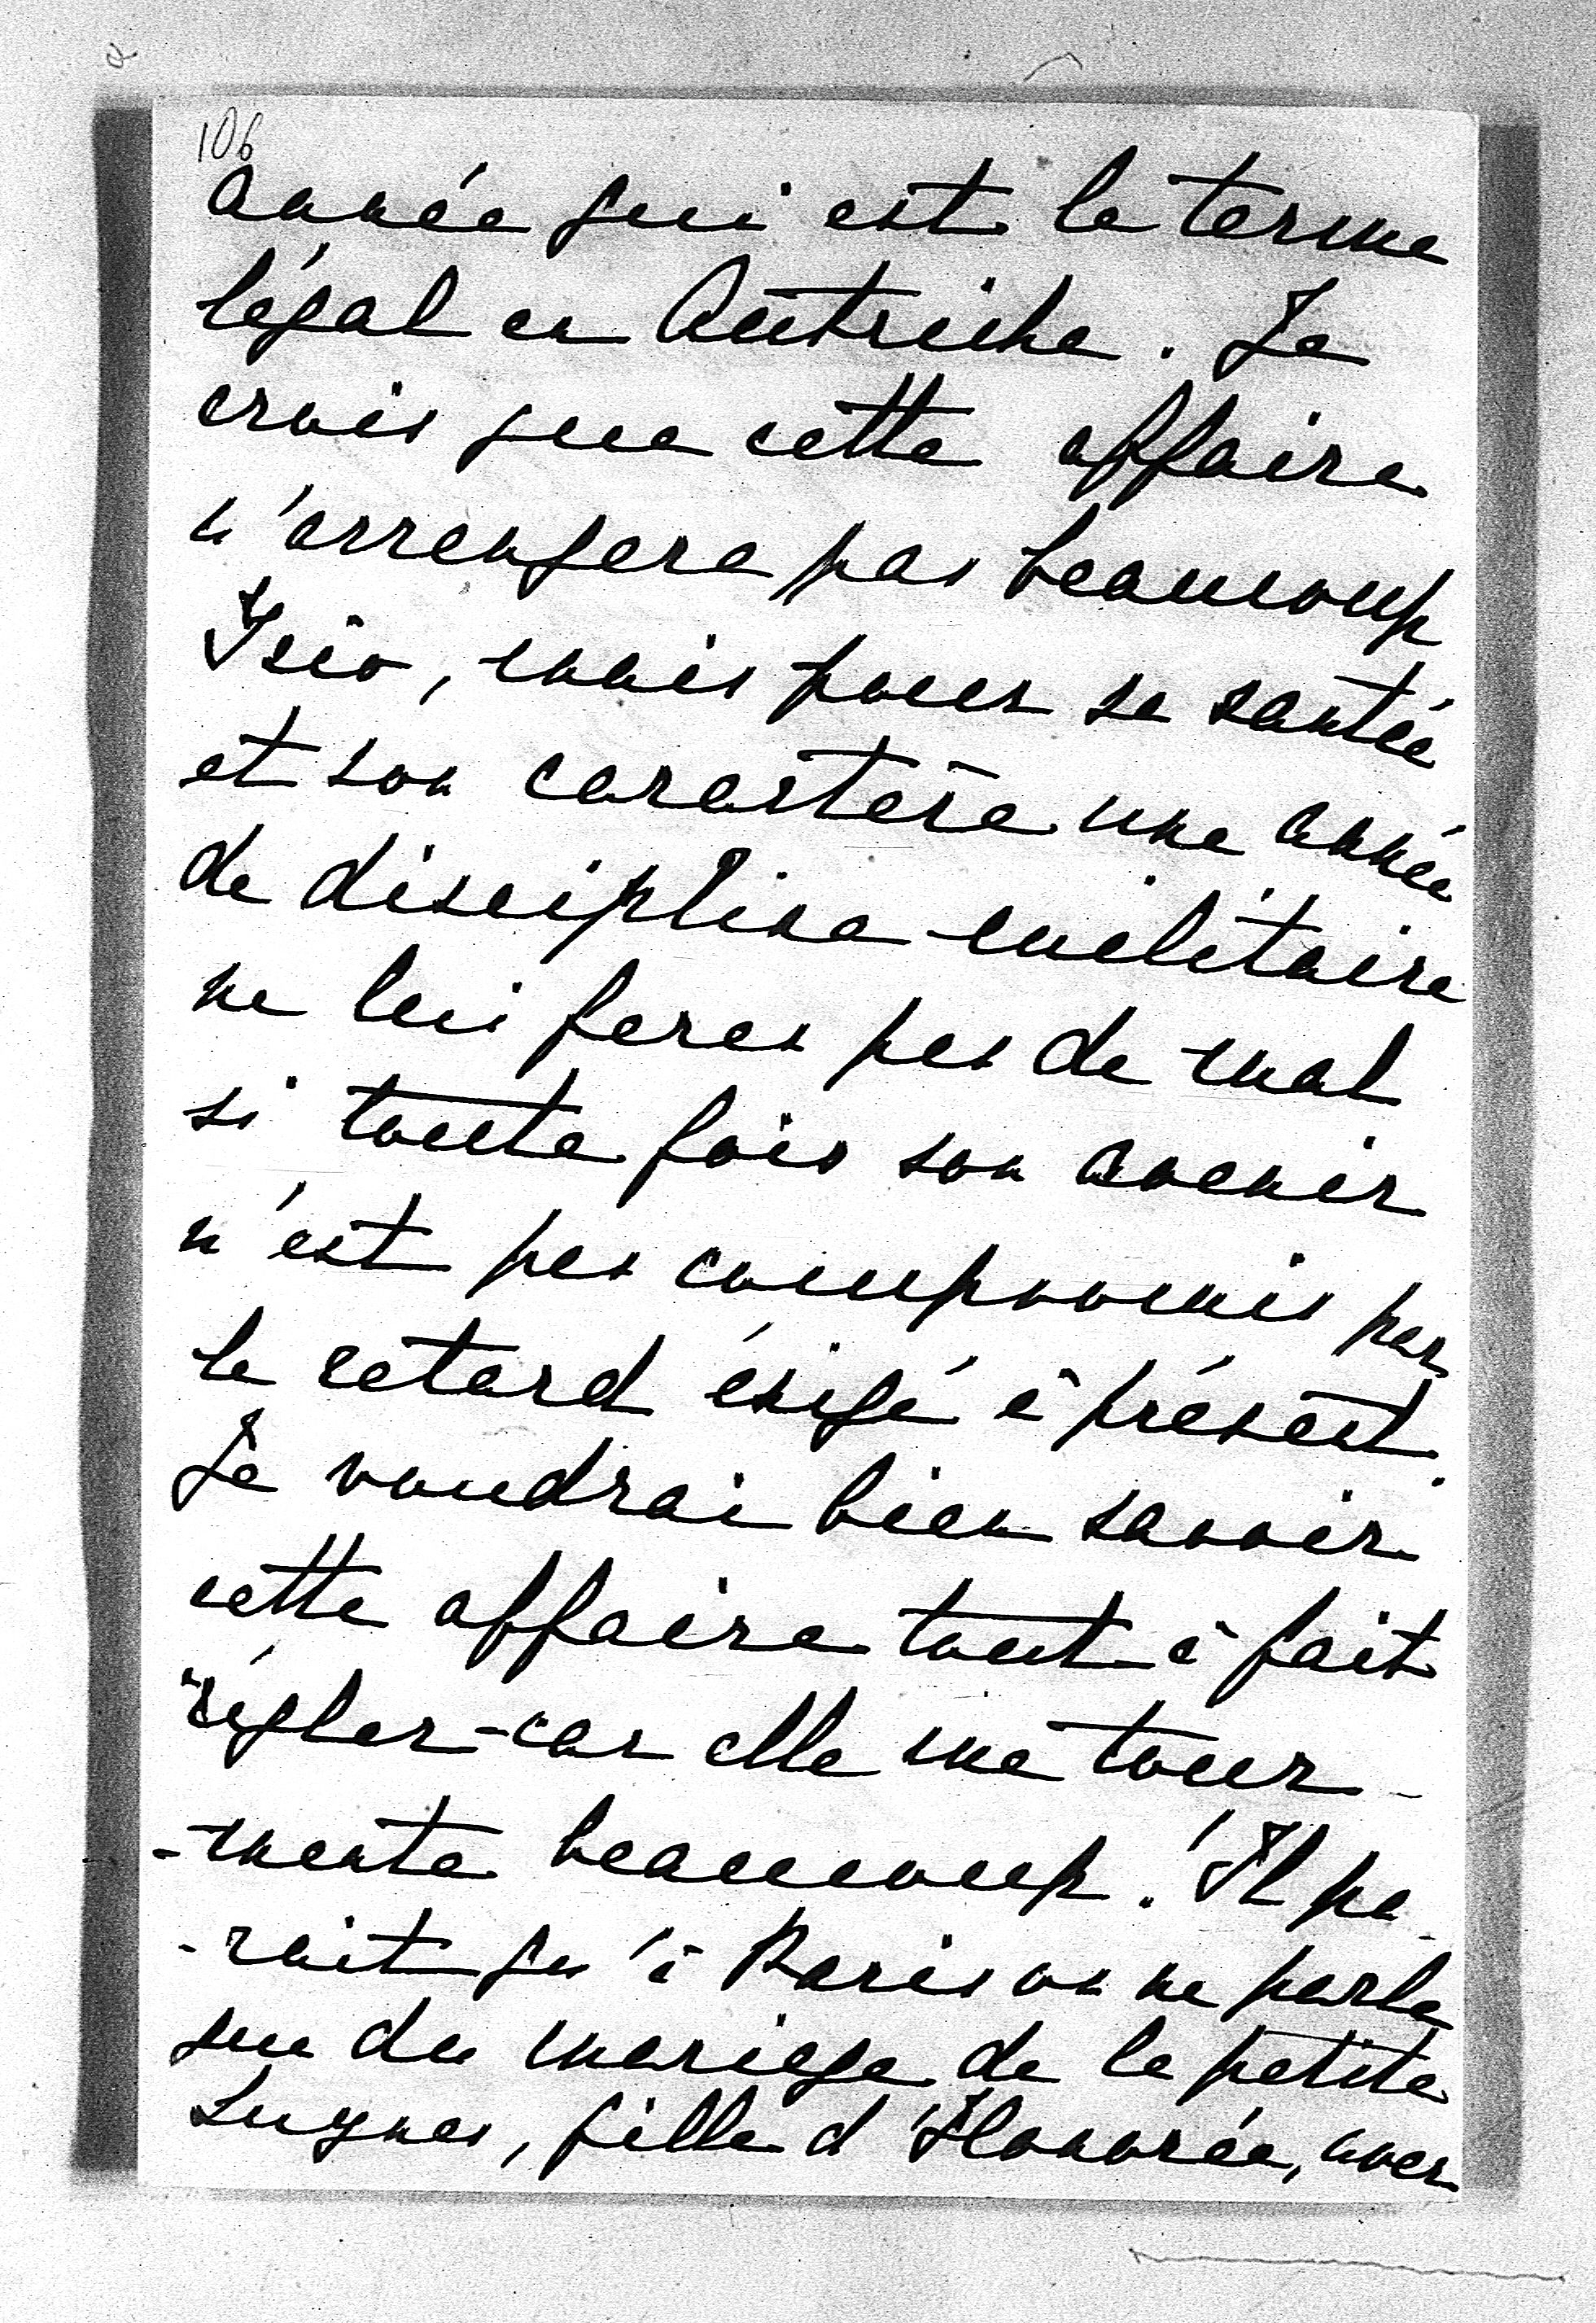 106
année qui est le terme
légal en Autriche. Je
crois que cette affaire
n'arrengera pas beaucoup
Isio, mais pour sa santée
et son caractère une année
de discipline militaire
ne lui feras pas de mal
si toute fois son avenir
n'est pas compromis par
le retard éxigé à présent.
Je voudrai bien savoir
cette affaire tout à fait
régler - car elle me tour-
-mente beaucoup. Il pa-
-rait qu'à Paris on ne parle
que du mariage de la petite
Luynes, fille d'Honorée, avec